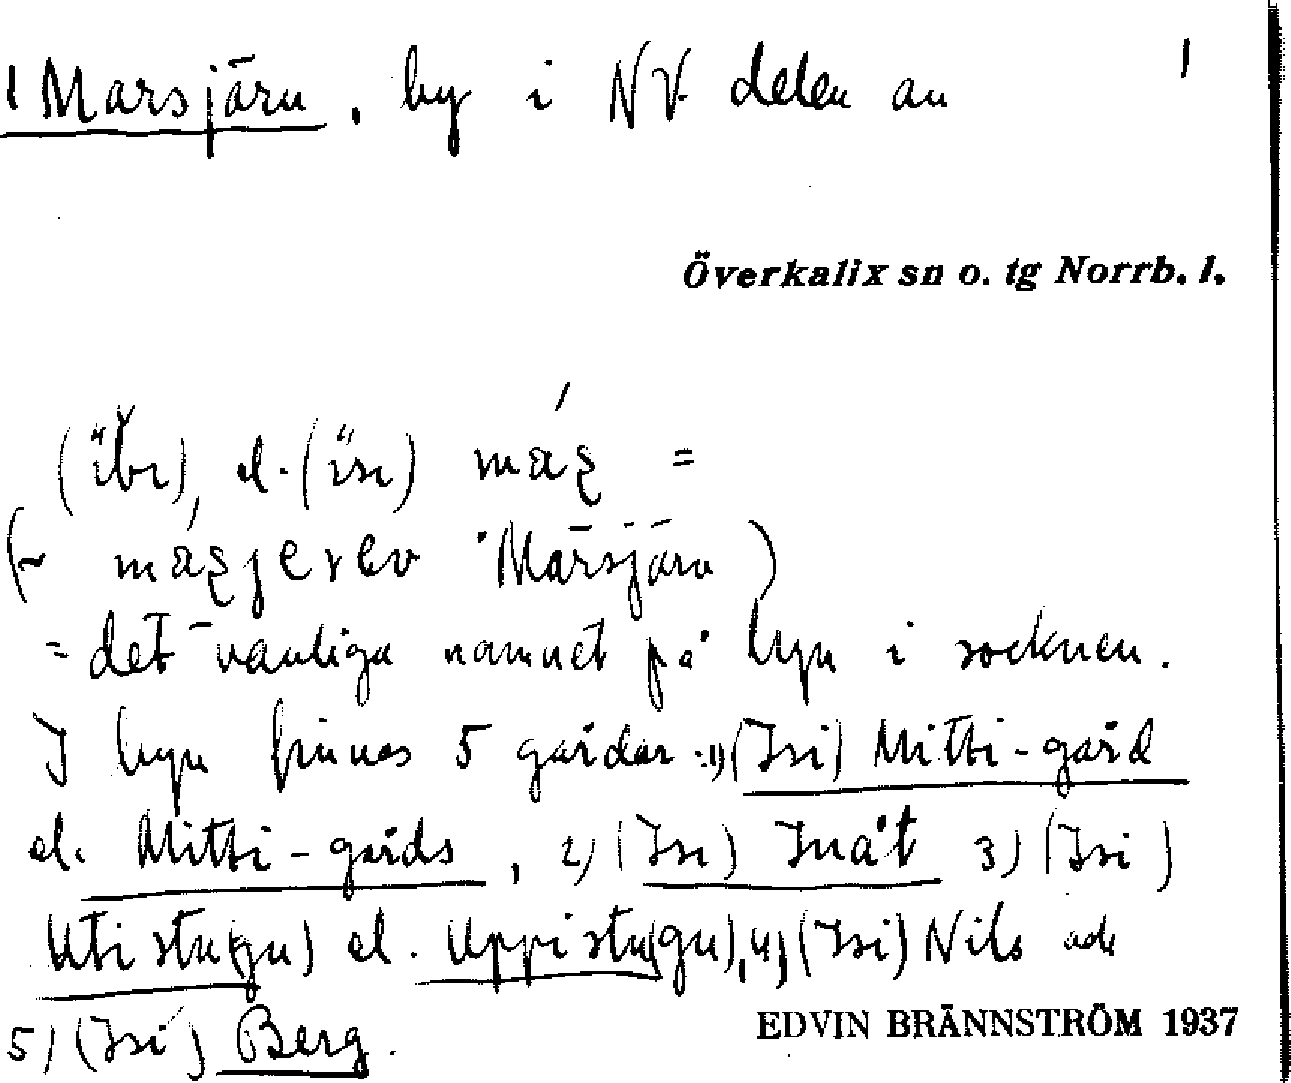 Marsjärn, by i NV. delen av
Överkalix sn o. tg Norrb. l.
el. =
Marsjärv)
= det vanliga namnet på byn i socknen.
I byn finnes 5 gårdar: 1) (Isi) Mitti-gård
el. Mitti-gårds, 2) (Isi) Inåt 3) (Isi)
Utistu(gu) el. Uppistu(gu), 4) (Isi) Nils och
5) (Isi) Berg.
EDVIN BRÄNNSTRÖM 1937